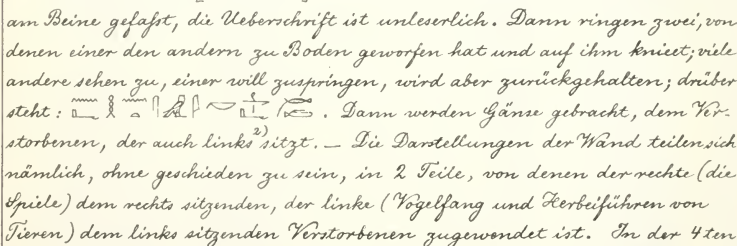 am Beine gefaßt, die Ueberschrift ist unleserlich. Dann ringen zwei, von
denen einer den andern zu Boden geworfen hat und auf ihm knieet; viele
andere sehen zu, einer will zuspringen, wird aber zurückgehalten; drüber
steht: . Dann werden Gänse gebracht, dem Ver-
storbenen, der auch links ²⁾ sitzt. — Die Darstellungen der Wand teilen sich
nämlich, ohne geschieden zu sein, in 2 Teile, von denen der rechte (die
Spiele) dem rechts sitzenden, der linke (Vogelfang und Herbeiführen von
Tieren) dem links sitzenden Verstorbenen zugewendet ist. In der 4ten